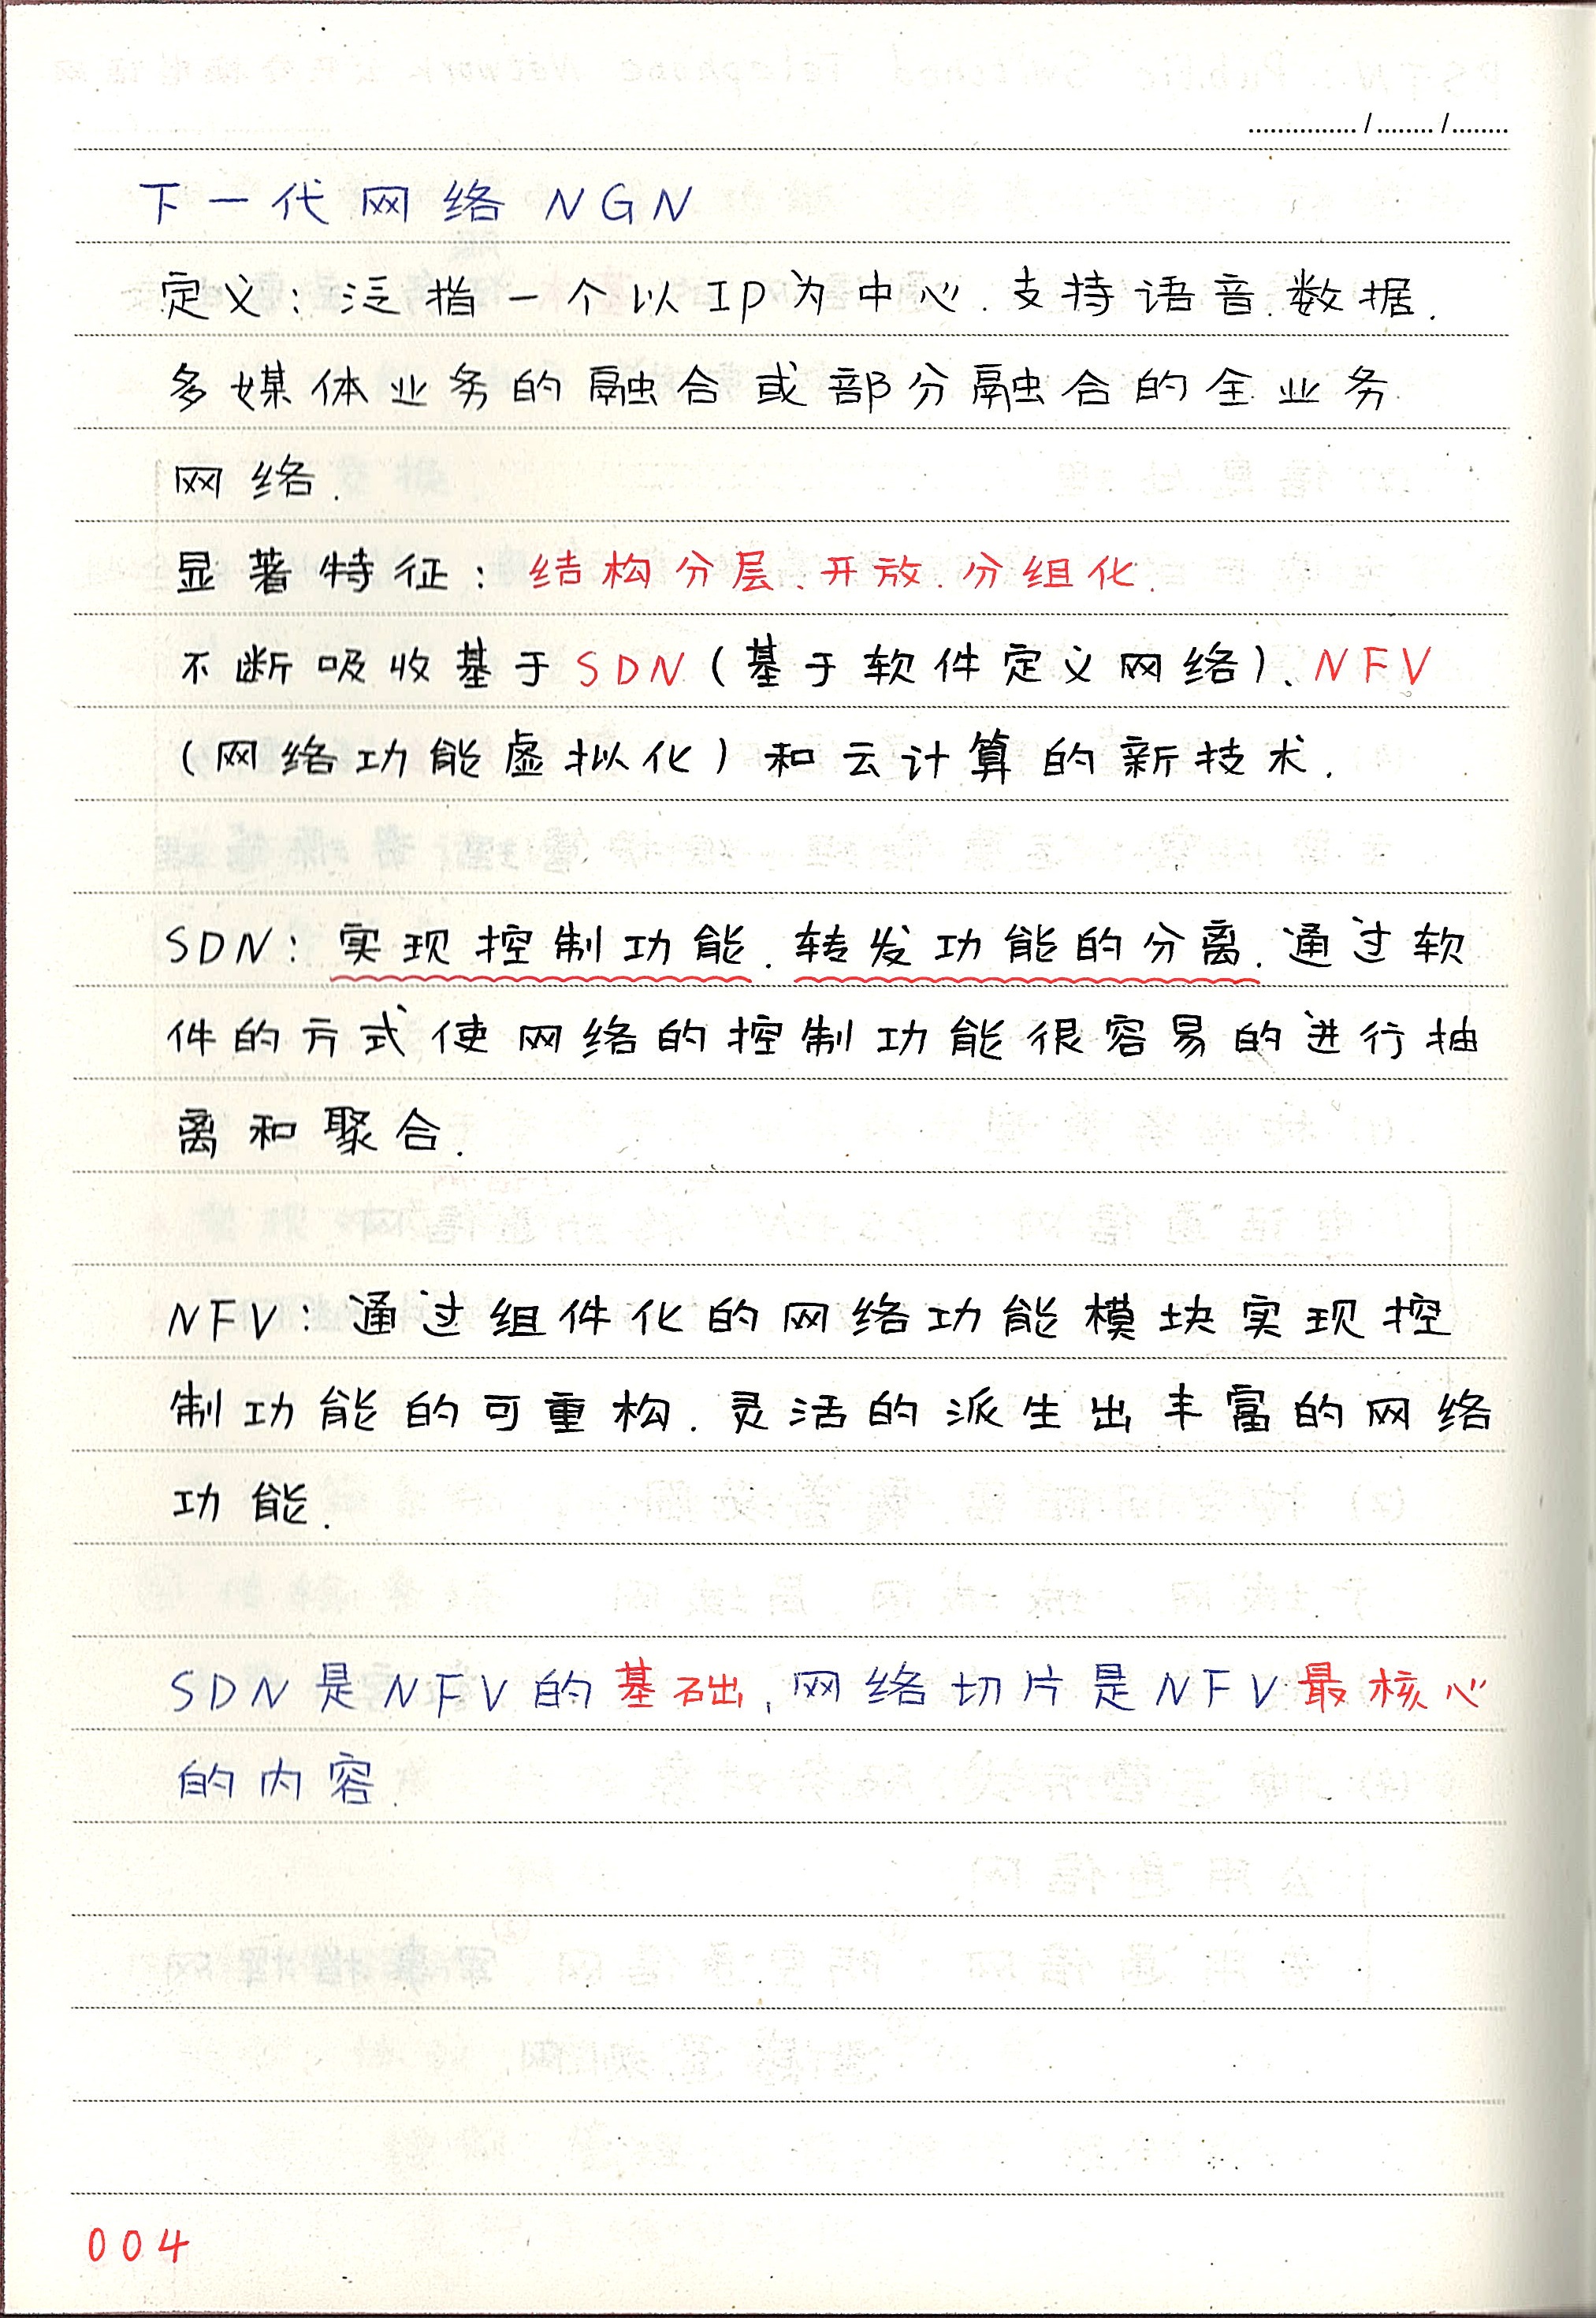 下一代网络 NGN
定义：泛指一个以IP为中心.支持语音.数据.
多媒体业务的融合或部分融合的全业务
网络.
显著特征：结构分层、开放.分组化.
不断吸收基于SDN（基于软件定义网络）、NFV
（网络功能虚拟化）和云计算的新技术.
SDN：实现控制功能.转发功能的分离.通过软
件的方式使网络的控制功能很容易的进行抽
离和聚合.
NFV：通过组件化的网络功能模块实现控
制功能的可重构.灵活的派生出丰富的网络
功能.
SDN是NFV的基础,网络切片是NFV最核心
的内容.
004